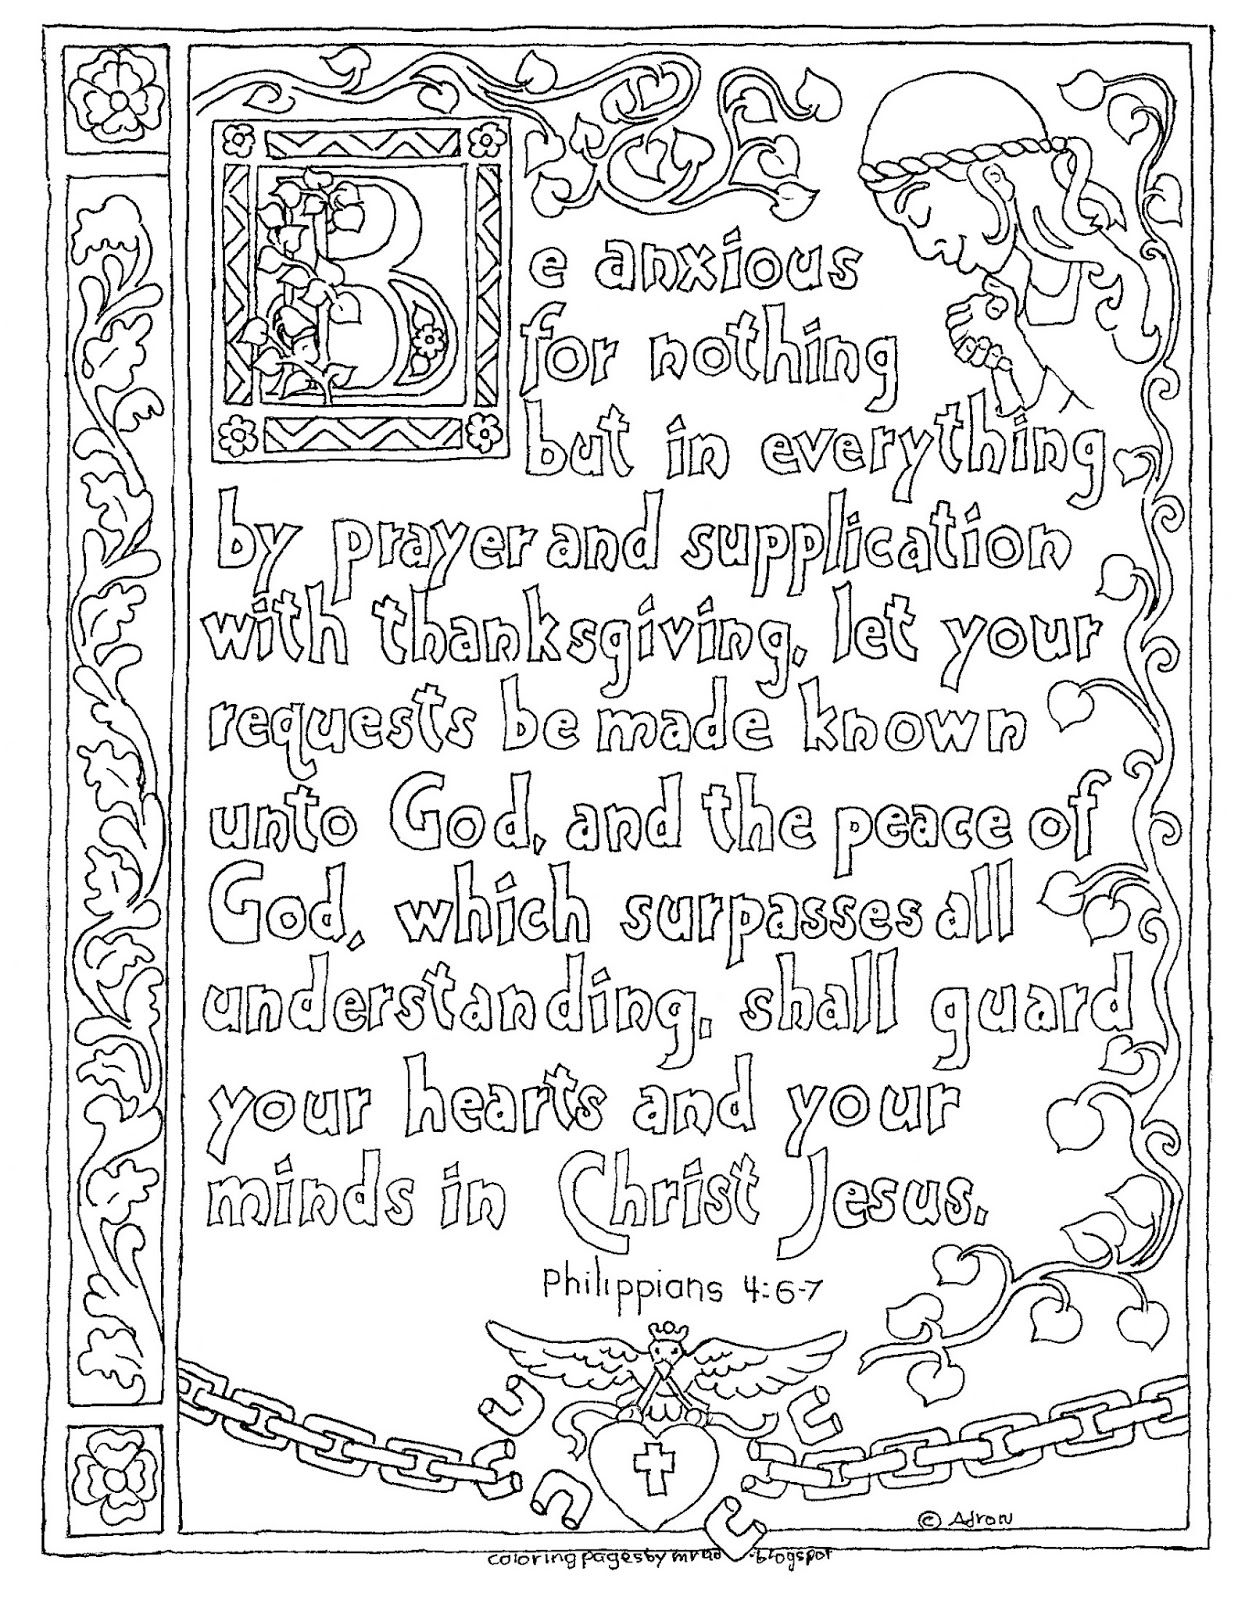 Be anxious
for nothing
but in everything
by prayer and supplication
with thanksgiving, let your
requests be made known
unto God, and the peace of
God, which surpasses all
understanding, shall guard
your hearts and your
minds in Christ Jesus.
Philippians 4:6-7
© Adron
coloringpagesby .blogspot